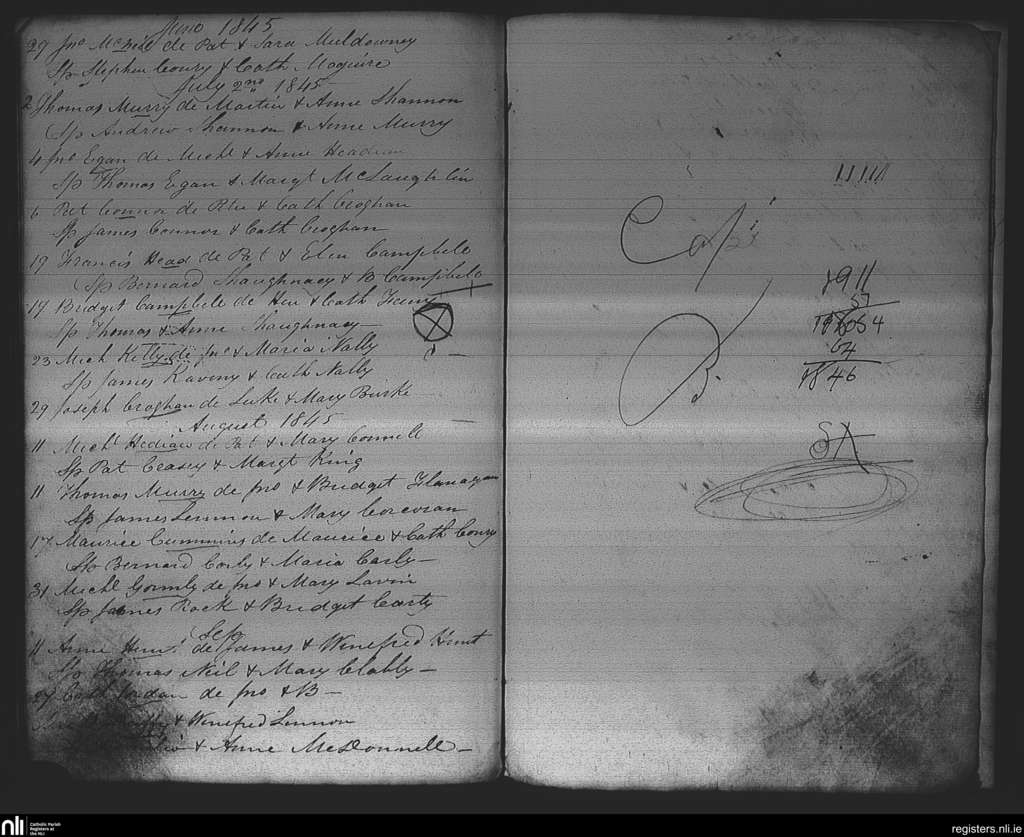 June 1845
29 Jno McNeil de Pat & Sara Muldowney
Sp Stephen Coury & Cath Maguire
July 2nd 1845
2 Thomas Murry de Martin & Anne Shannon
Sp Andrew Shannon & Anne Murry
4 Jno Egan de Michl & Anne
Sp Thomas Egan & Margt McLaughlin
6 Pat Connor de Peter & Cath Croghan
Sp James Connor & Cath Croghan
19 Francis Head de Pat & Elen Campbele
Sp Bernard Shaughnacy & B Campbele
17 Bridget Campbele de & Cath
Sp Thomas & Anne Shaughnacy
23 Mich Kelly de Jno & Maria Nally
Sp James Raveny & Cath Nally
29 Joseph Croghan de Luke & Mary Burke
August 1845
11 Michl Hedian de Pat & Mary Connell
Sp Pat Ceasey & Margt King
11 Thomas Murry de Jno & Bridget Flanagan
Sp James Lennon & Mary Corcoran
17 Maurice Cummins de Maurice & Cath Coury
Sp Bernard Corly & Maria Carly
31 Michl Gormly de Jno & Mary Lavin
Sp James Rock & Bridget Carty
Sep
11 Anne de James & Winefred Hunt
Sp Thomas Neil & Mary Clabby
27 Cath Jordan de Jno & B
& Winefred Lennon
& Anne McDonnell
11111
1911
57
54
64
1846
nli
Catholic Parish
Registers at
the NLI
registers.nli.ie